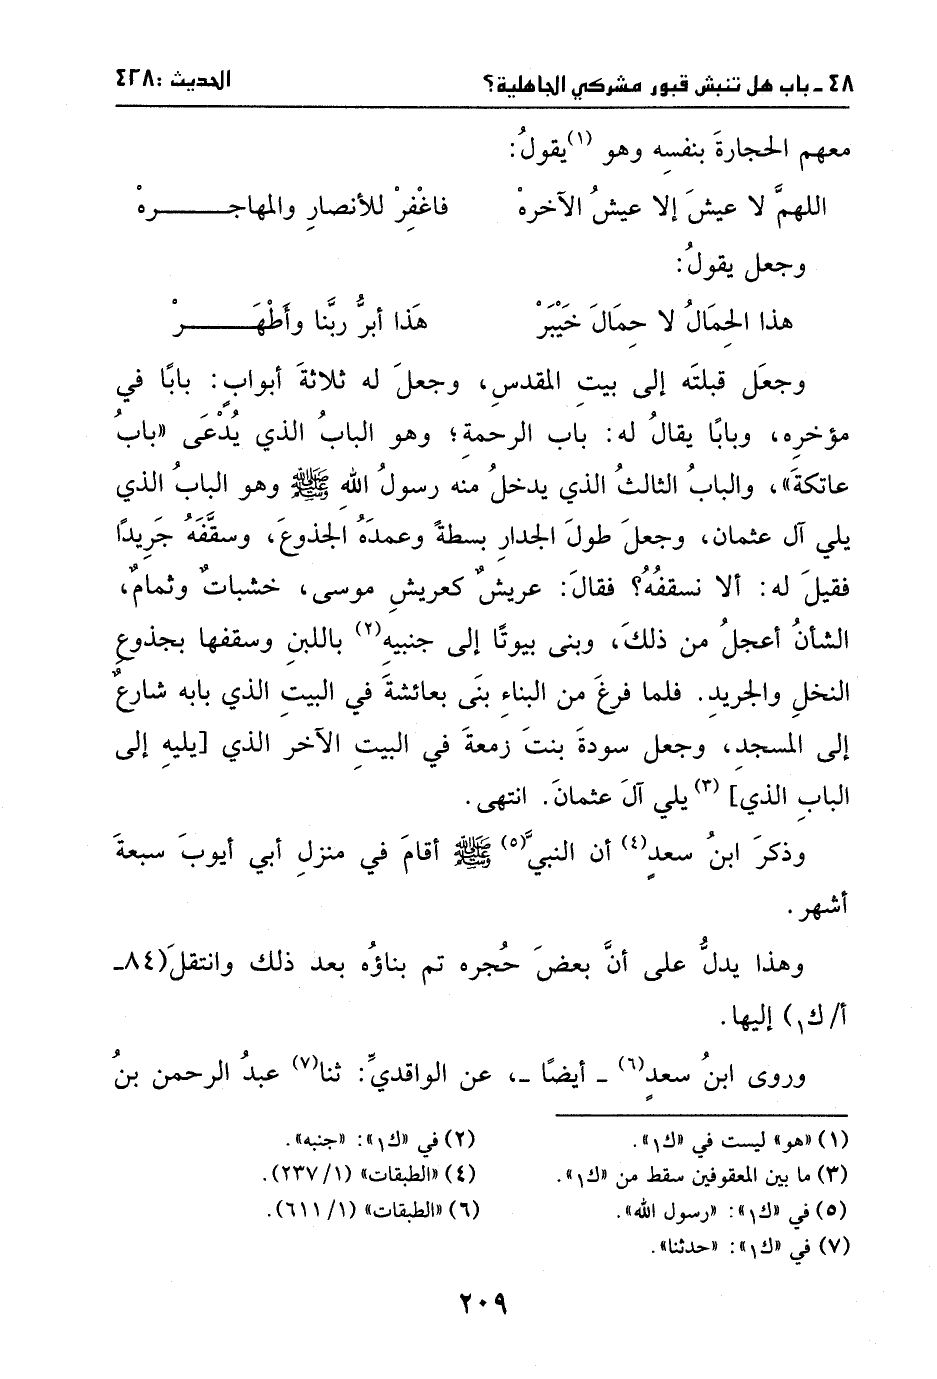 ٤٨ ـ باب هل تنبش قبور مشركي الجاهلية؟ الحديث :٤٢٨
معهم الحجارةَ بنفسِه وهو (١)يقولُ:
اللهمَّ لا عيشَ إلا عيشُ الآخرهْ فاغْفِرْ للأنصارِ والمهاجـــــــرهْ
وجعل يقولُ:
هذا الحِمَالُ لا حِمَالَ خَيْبَرْ هَذا أبرُّ ربَّنا وأَطْهَـــــــرْ
وجعَل قبلتَه إلى بيتِ المقدسِ، وجعلَ له ثلاثةَ أبوابٍ: بابًا في
مؤخرِه، وبابًا يقالُ له: باب الرحمة؛ وهو البابُ الذي يُدْعَى «بابُ
عاتكةَ»، والبابُ الثالثُ الذي يدخلُ منه رسولُ اللهِ ﷺ وهو البابُ الذي
يلي آل عثمان، وجعلَ طولَ الجدارِ بسطةً وعمدَهُ الجذوعَ، وسقَّفَهُ جَرِيدًا
فقيلَ له: ألا نسقفُهُ؟ فقالَ: عريشٌ كعريشِ موسى، خشباتٌ وثمامٌ،
الشأنُ أعجلُ من ذلكَ، وبنى بيوتًا إلى جنبيهِ(٢) باللبنِ وسقفها بجذوعِ
النخلِ والجريدِ. فلما فرغَ من البناءِ بنَى بعائشةَ في البيتِ الذي بابه شارعٌ
إلى المسجدِ، وجعل سودةَ بنتَ زمعةَ في البيتِ الآخر الذي [يليهِ إلى
البابِ الذي] (٣)يلي آلَ عثمانَ. انتهى.
وذكرَ ابنُ سعدٍ(٤) أن النبيَّ(٥) ﷺ أقامَ في منزلِ أبي أيوبَ سبعةَ
أشهر.
وهذا يدلُّ على أنَّ بعضَ حُجره تم بناؤه بعد ذلك وانتقلَ(٨٤ـ
أ/ك١) إليها.
وروى ابنُ سعدٍ(٦) ـ أيضًا ـ، عن الواقديِّ: ثنا(٧) عبدُ الرحمن بنُ
(١) «هو» ليست في «ك١». (٢) في «ك١»: «جنبه».
(٣) ما بين المعقوفين سقط من «ك١». (٤) «الطبقات» (١/ ٢٣٧).
(٥) في «ك١»: «رسول الله». (٦) «الطبقات» (١/ ٦١١).
(٧) في «ك١»: «حدثنا».
٢٠٩